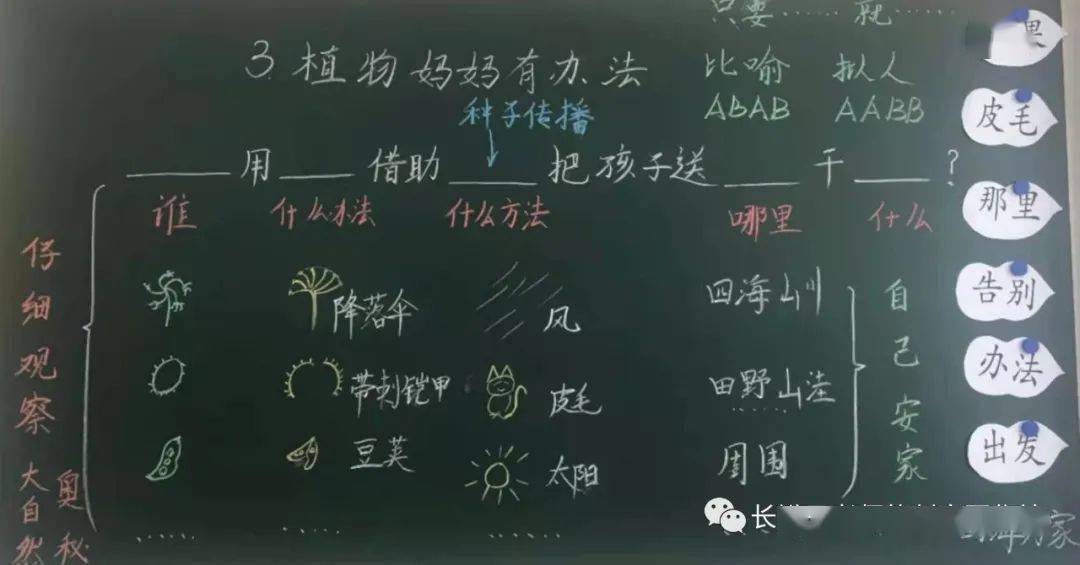 只要…… 就……
3.植物妈妈有办法
比喻 拟人
ABAB AABB
种子传播
____用____借助____把孩子送____干____?
谁 什么办法 什么方法 哪里 什么
降落伞 风 四海山川
带刺铠甲 皮毛 田野山洼
豆荚 太阳 周围
…… …… …… ……
自己安家
仔细观察
大自然
奥秘
皮毛
那里
告别
办法
出发
长
家